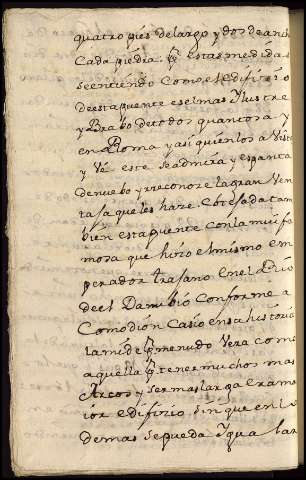 quatro pies de largo y dos de anch
Cada piedra. q estas medidas
se entiendo Como el Edificio
de esta puente es el mas Ylustre
y Brabo de todos quantos ay
en Roma y asi quien los a Visto
y Ve este se admira y espanta
de nuebo y rreconoze la gran Ven
taja que les haze. Cotejada tam
bien esta puente con la muj fa
mosa que hizo el mismo em
perador trajano en el Rio
de el Danubio Conforme a
Como dion Casio en su historia
la mide menudo Vera como
aquella q tener muchos mas
Arcos y ser mas larga Era ma
ior edifizio sin que en lo
demas se pueda Ygualar